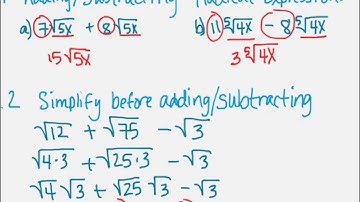 Adding/Subtracting Radical Expressions
a) 7√5x + 8√5x b) 11⁵√4x - 8⁵√4x
15√5x 3⁵√4x
.2 Simplify before adding/subtracting
√12 + √75 - √3
√4·3 + √25·3 - √3
√4 √3 + √25 √3 - √3